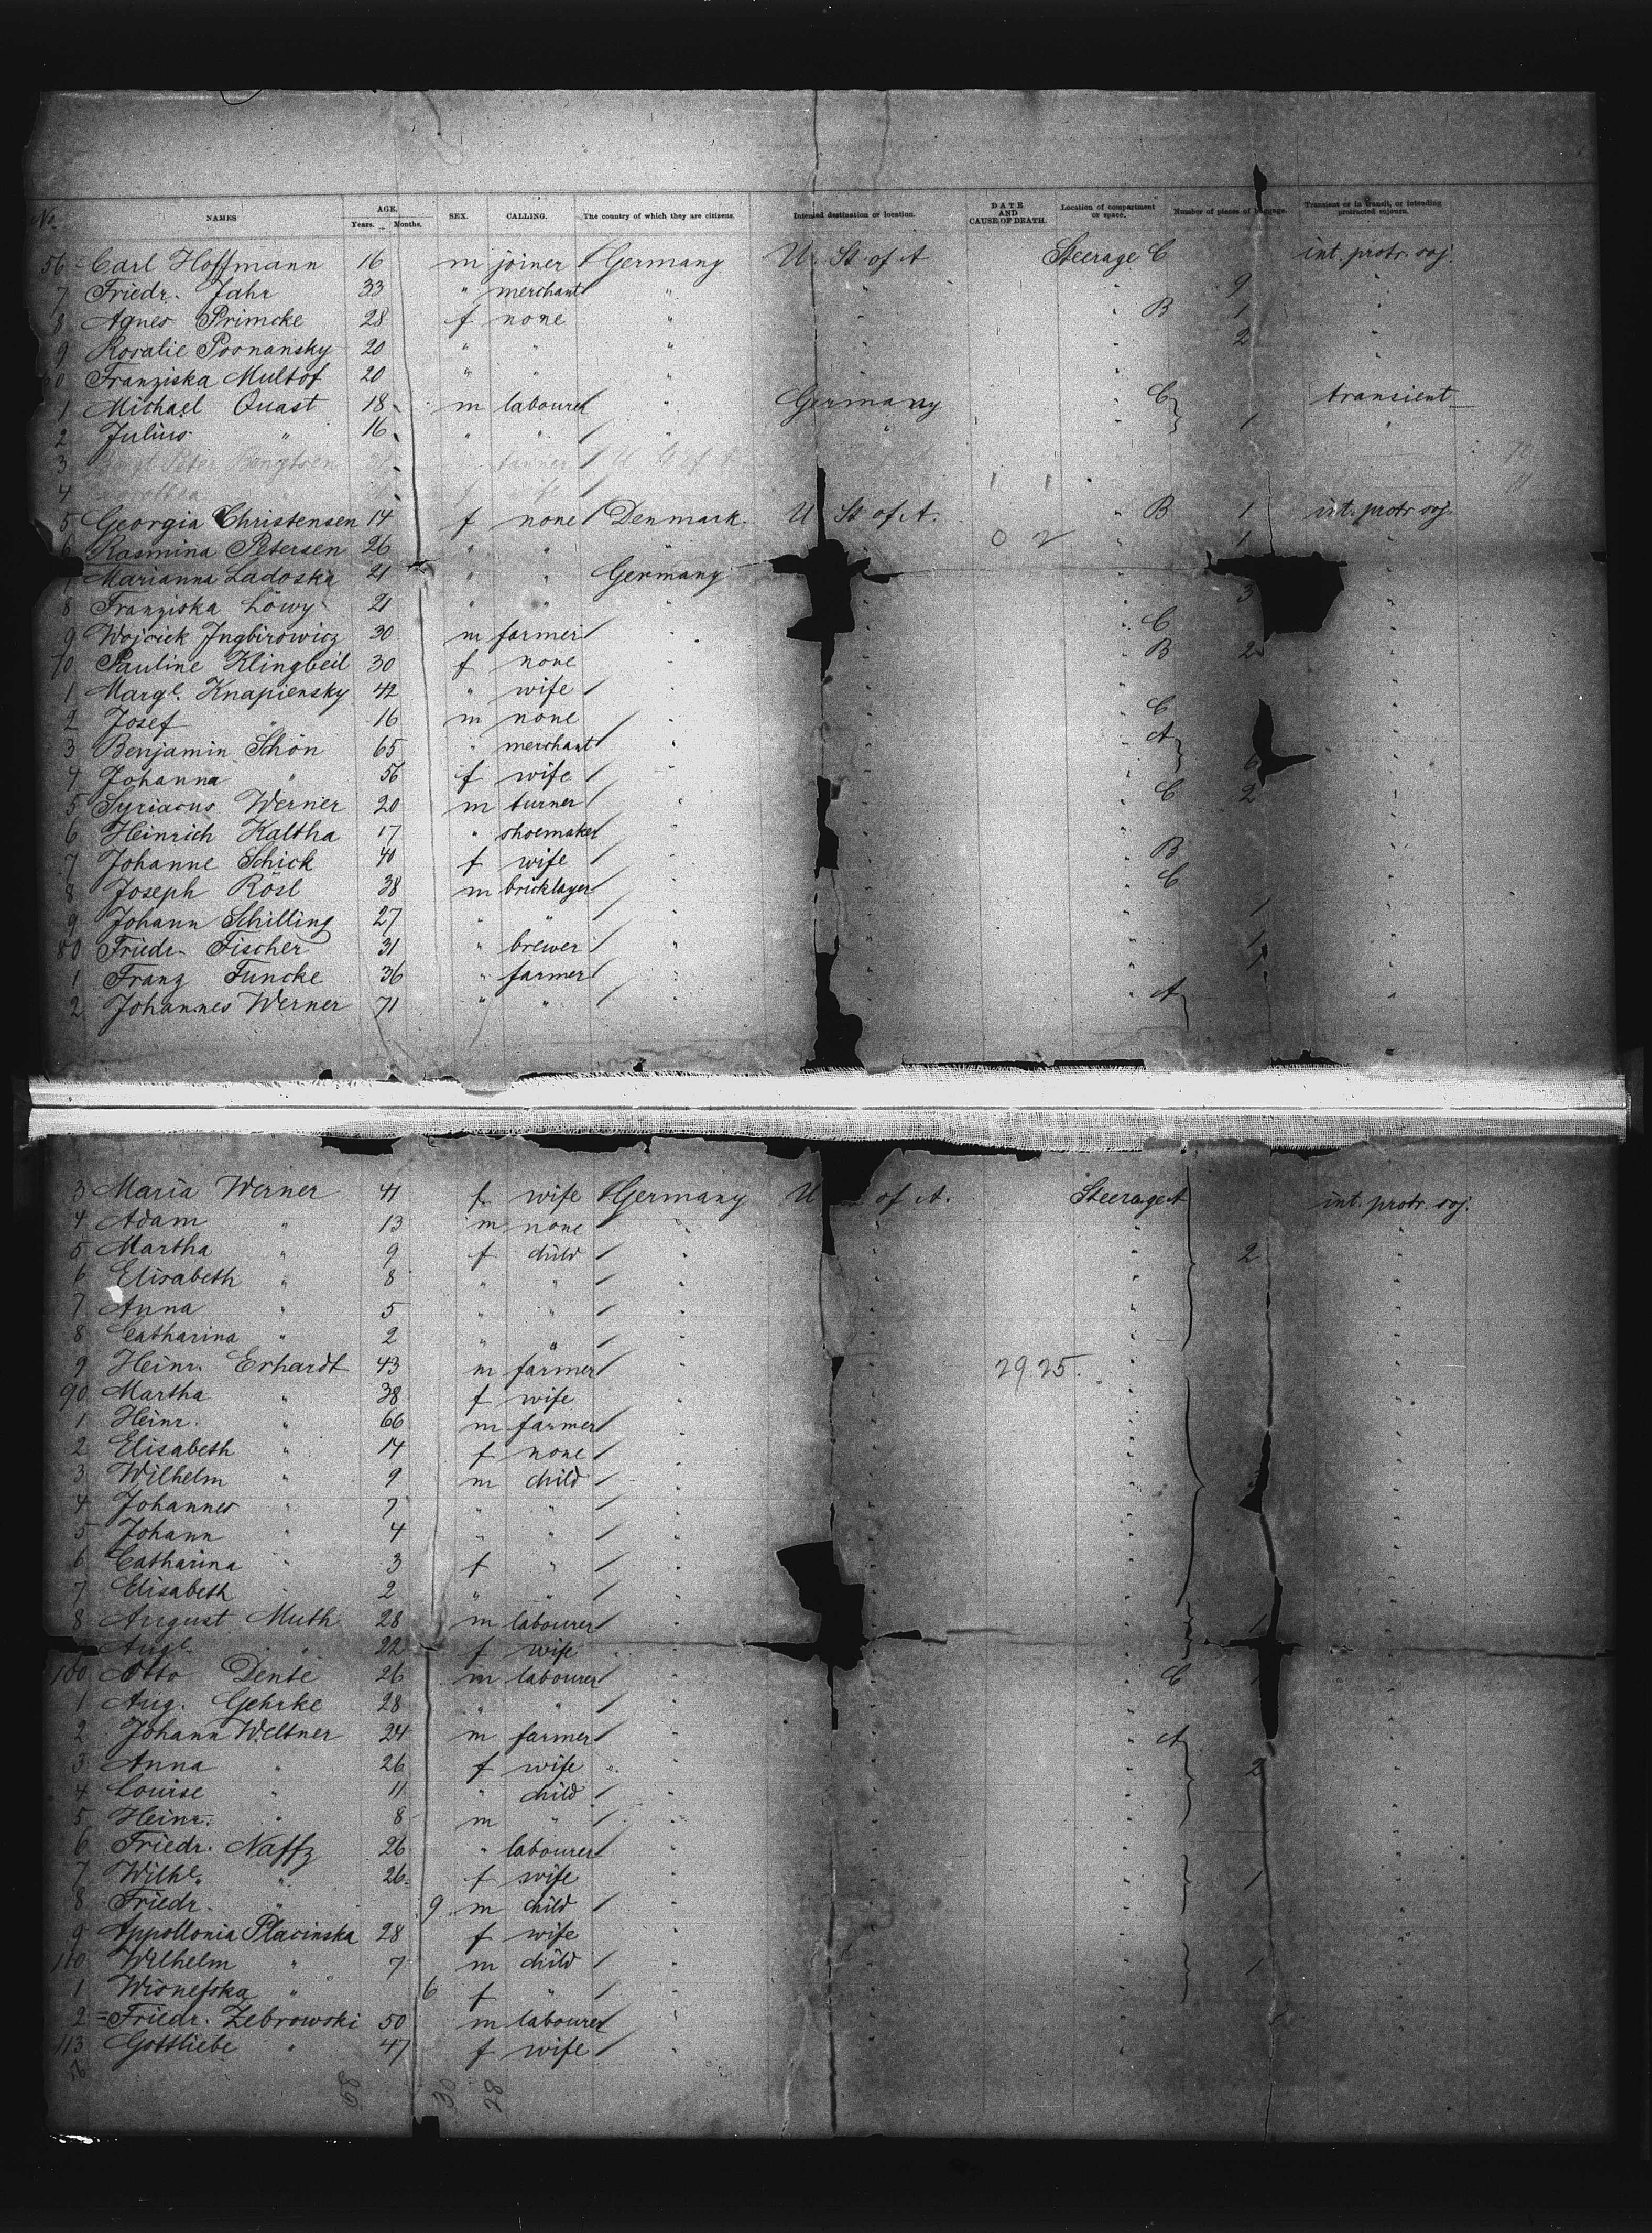 No. NAMES AGE. Years. Months. SEX. CALLING. The country of which they are citizens. Intended destination or location. DATE AND CAUSE OF DEATH. Location of compartment or space. Number of pieces of baggage. Transient or in transit, or intending protracted sojourn.
56 Carl Hoffmann 16 m joiner Germany U. St. of A Steerage C int. protr. soj.
7 Friedr. Jahr 33 " merchant " " " 9 "
8 Agnes Primcke 28 f none " " " B 1 "
9 Rosalie Posnansky 20 " " " " " 2 "
60 Franziska Multof 20 " " " " " "
1 Michael Quast 18 m labourer " Germany " C transient
2 Julius " 16 " " " " " 1 "
3 Bengt Peter Bengtsen tanner U. St. of A 70
4 f wife 71
5 Georgia Christensen 14 f none Denmark. U. St of A. " B 1 int. protr soj.
6 Rasmina Petersen 26 " " 0 2 " 1 "
7 Marianna Ladoska 21 " " Germany "
8 Franziska Löwy 21 " " " 3 "
9 Wojciek Jngbirowicz 30 m farmer " " C "
70 Pauline Klingbeil 30 f none " " B 2 "
1 Margt. Knapiensky 42 " wife " " "
2 Josef " 16 m none " " C "
3 Benjamin Schön 65 " merchant " " A "
4 Johanna " 56 f wife " " 6 "
5 Syriacus Werner 20 m turner " " C 2 "
6 Heinrich Kaltha 17 " shoemaker " " "
7 Johanne Schick 40 f wife " " B "
8 Joseph Rösl 38 m bricklayer " " C "
9 Johann Schilling 27 " " " " 1 "
80 Friedr. Fischer 31 " brewer " " 1 "
1 Franz Funcke 36 " farmer " " 1 "
2 Johannes Werner 71 " " " " A "
3 Maria Werner 41 f wife Germany U of A. Steerage A int. protr. soj.
4 Adam " 13 m none " " " "
5 Martha " 9 f child " " " 2 "
6 Elisabeth " 8 " " " " " "
7 Anna " 5 " " " " " "
8 Catharina " 2 " " " " " "
9 Heinr. Erhardt 43 m farmer " " 29 25. " "
90 Martha " 38 f wife " " " "
1 Heinr. " 66 m farmer " " " "
2 Elisabeth " 14 f none " " " "
3 Wilhelm " 9 m child " " " "
4 Johannes " 7 " " " " " "
5 Johann " 4 " " " " " "
6 Catharina " 3 f " " " " "
7 Elisabeth " 2 " " " " " "
8 August Muth 28 m labourer " " 1 "
Augt. " 22 f wife " " "
100 Otto Dente 26 m labourer " " C 1 "
1 Aug. Gehrke 28 " " " " "
2 Johann Weltner 24 m farmer " " " A "
3 Anna " 26 f wife " " " 2 "
4 Louise " 11 " child " " " "
5 Heinr. " 8 m " " " " "
6 Friedr. Naffz 26 " labourer " " " "
7 Wilhe. " 26 f wife " " " 1 "
8 Friedr. " 9 m child " " " "
9 Appollonia Placinska 28 f wife " " " "
110 Wilhelm " 7 m child " " " 1 "
1 Wisnefska " 6 f " " " " "
2 = Friedr. Zebrowski 50 m labourer " " " "
113 Gottliebe " 47 f wife " " " "
58 30 28